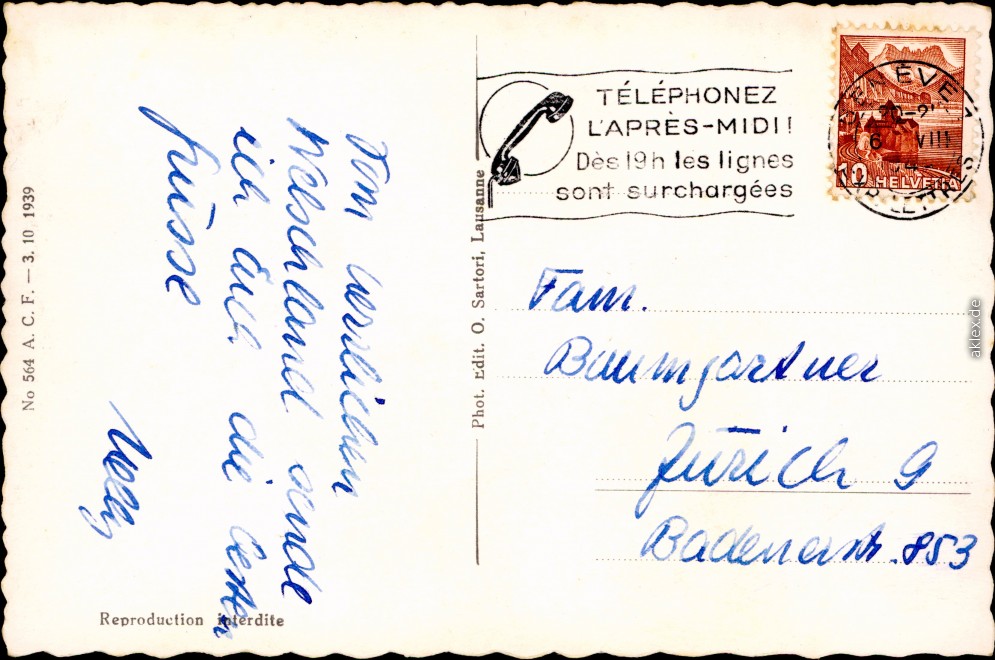 TÉLÉPHONEZ
L'APRÈS-MIDI!
Dès 19h les lignes
sont surchargées
GENÈVE 1
6 VIII
EXP. LETTRES
10 HELVETIA
Vom herrlichen
Welschland sende
ich Euch die besten
Grüsse
Nelly
Fam.
Baumgartner
Zürich 9
Badenerstr. 853
Phot. Edit. O. Sartori, Lausanne
No 564 A. C. F. — 3. 10 1939
Reproduction interdite
aklex.de